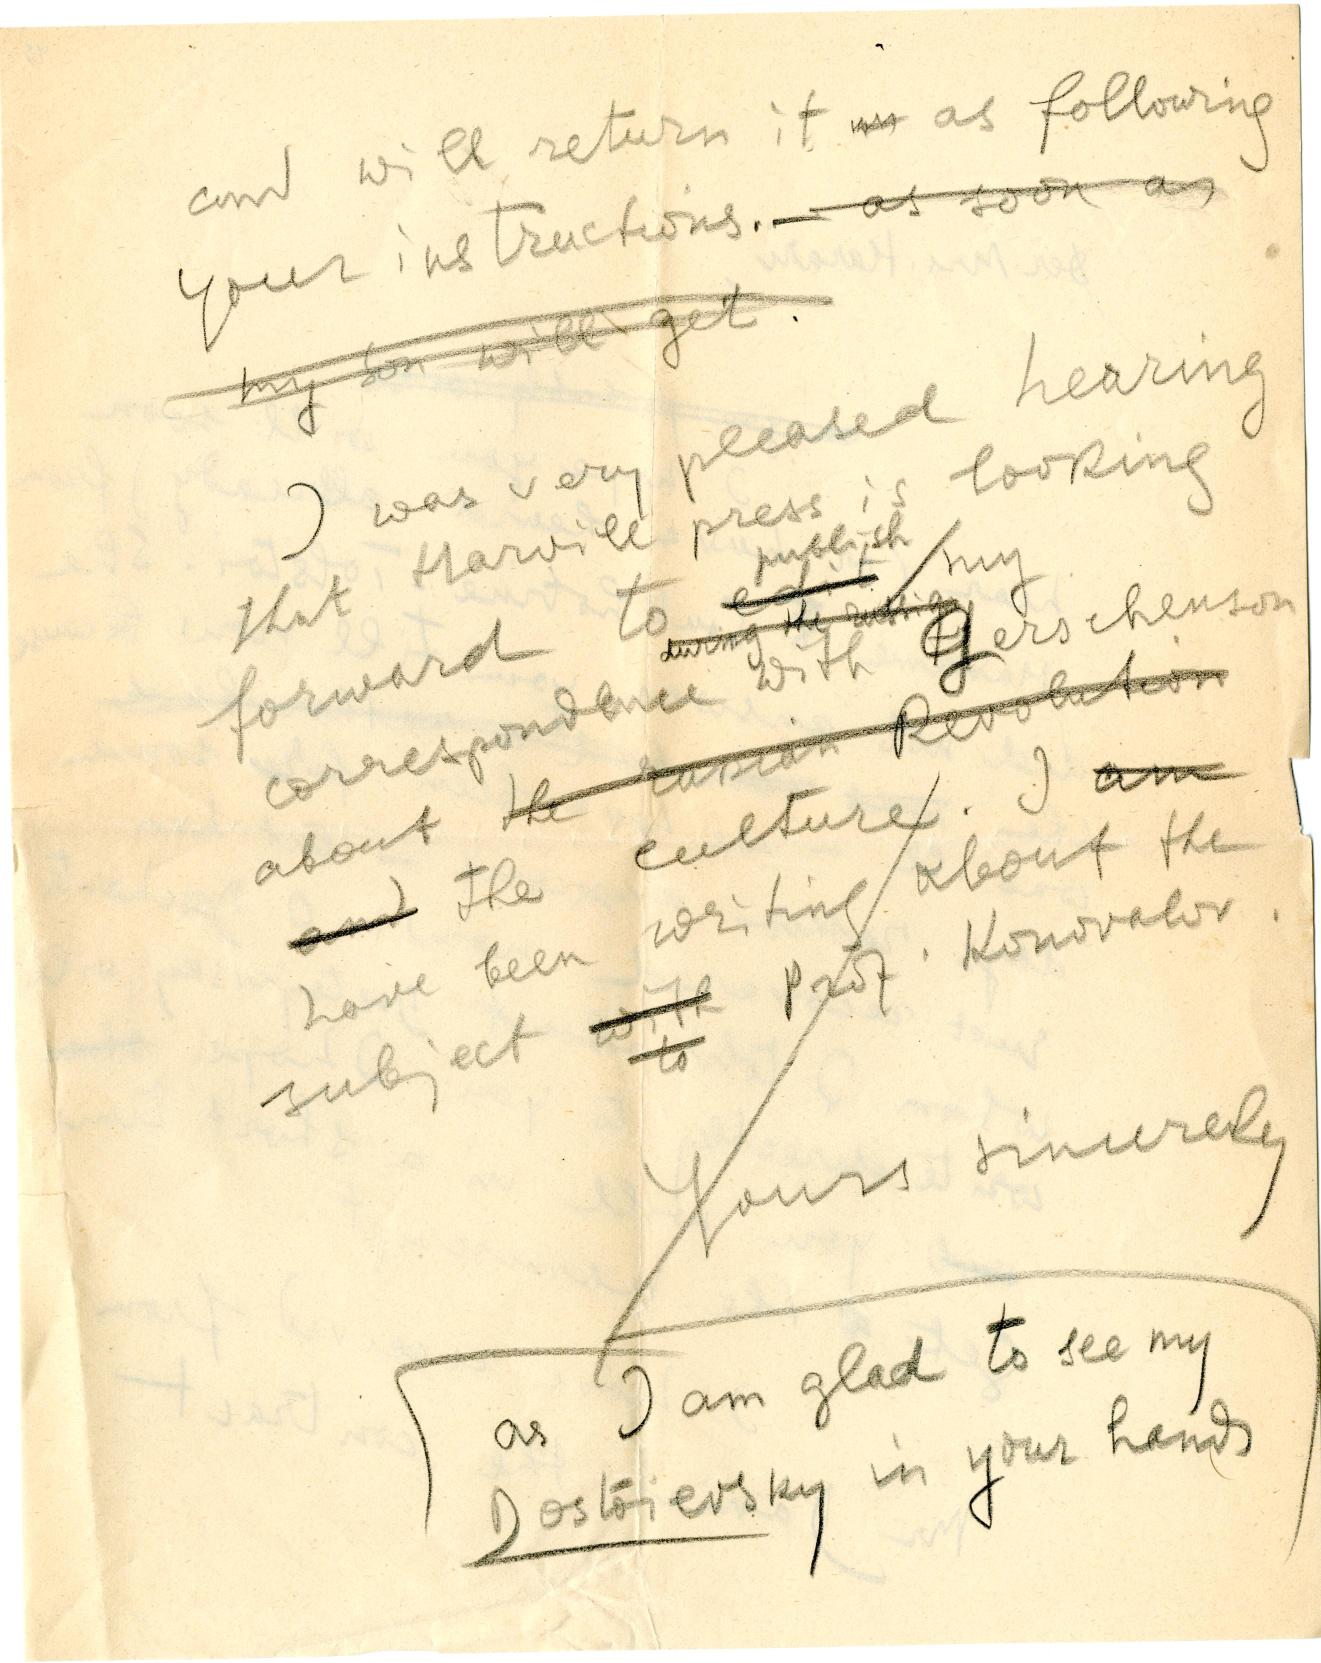 and will return it as following
your instructions. — as soon as
my son will get.
I was very pleased hearing
that Harvill press is looking
publish
forward to edit my
during the
correspondence with Gerschenson
about the rusian Revolution
and the culture. I am
have been writing about the
subject with Prof. Konovalov.
to
Yours sincerely
as I am glad to see my
Dostoievsky in your hands